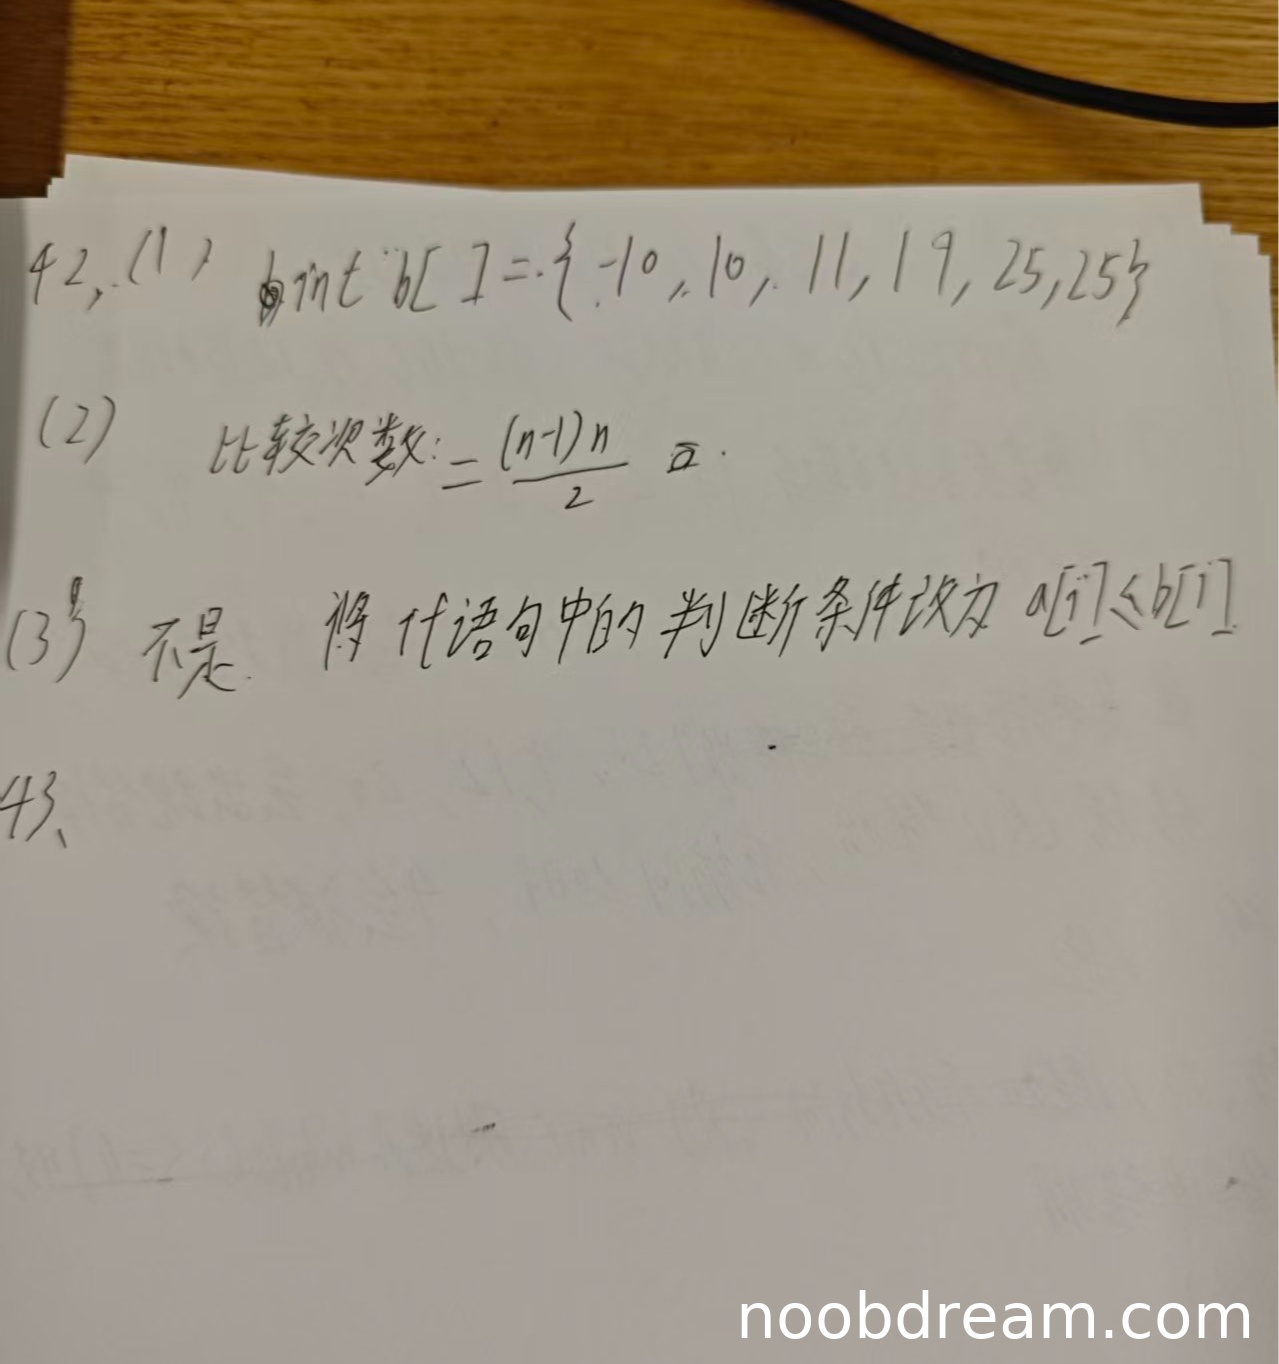 42, (1) int b[ ] = { -10, 10, 11, 19, 25, 25}
(2) 比较次数: = (n-1)n / 2
(3) 不是. 将 if语句中的判断条件改为 a[i]≤b[j].
43、
noobdream.com